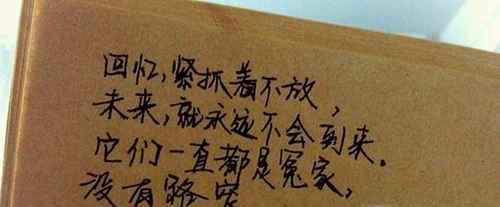 回忆,紧抓着不放,
未来,就永远不会到来。
它们一直都是冤家,
没有路窄